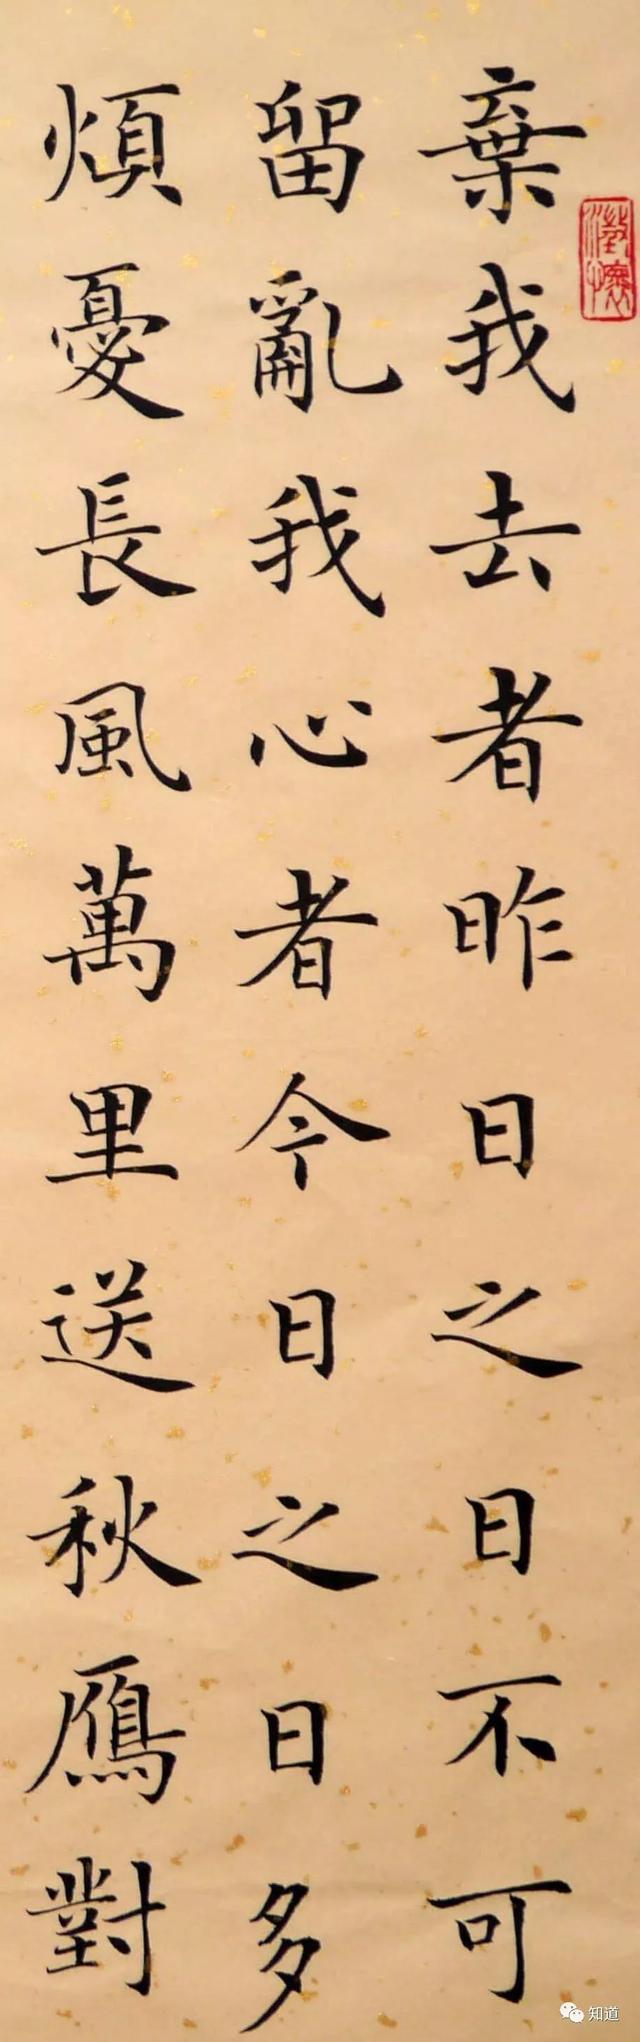 棄我去者昨日之日不可
留亂我心者今日之日多
煩憂長風萬里送秋鴈對
澄懷
知道